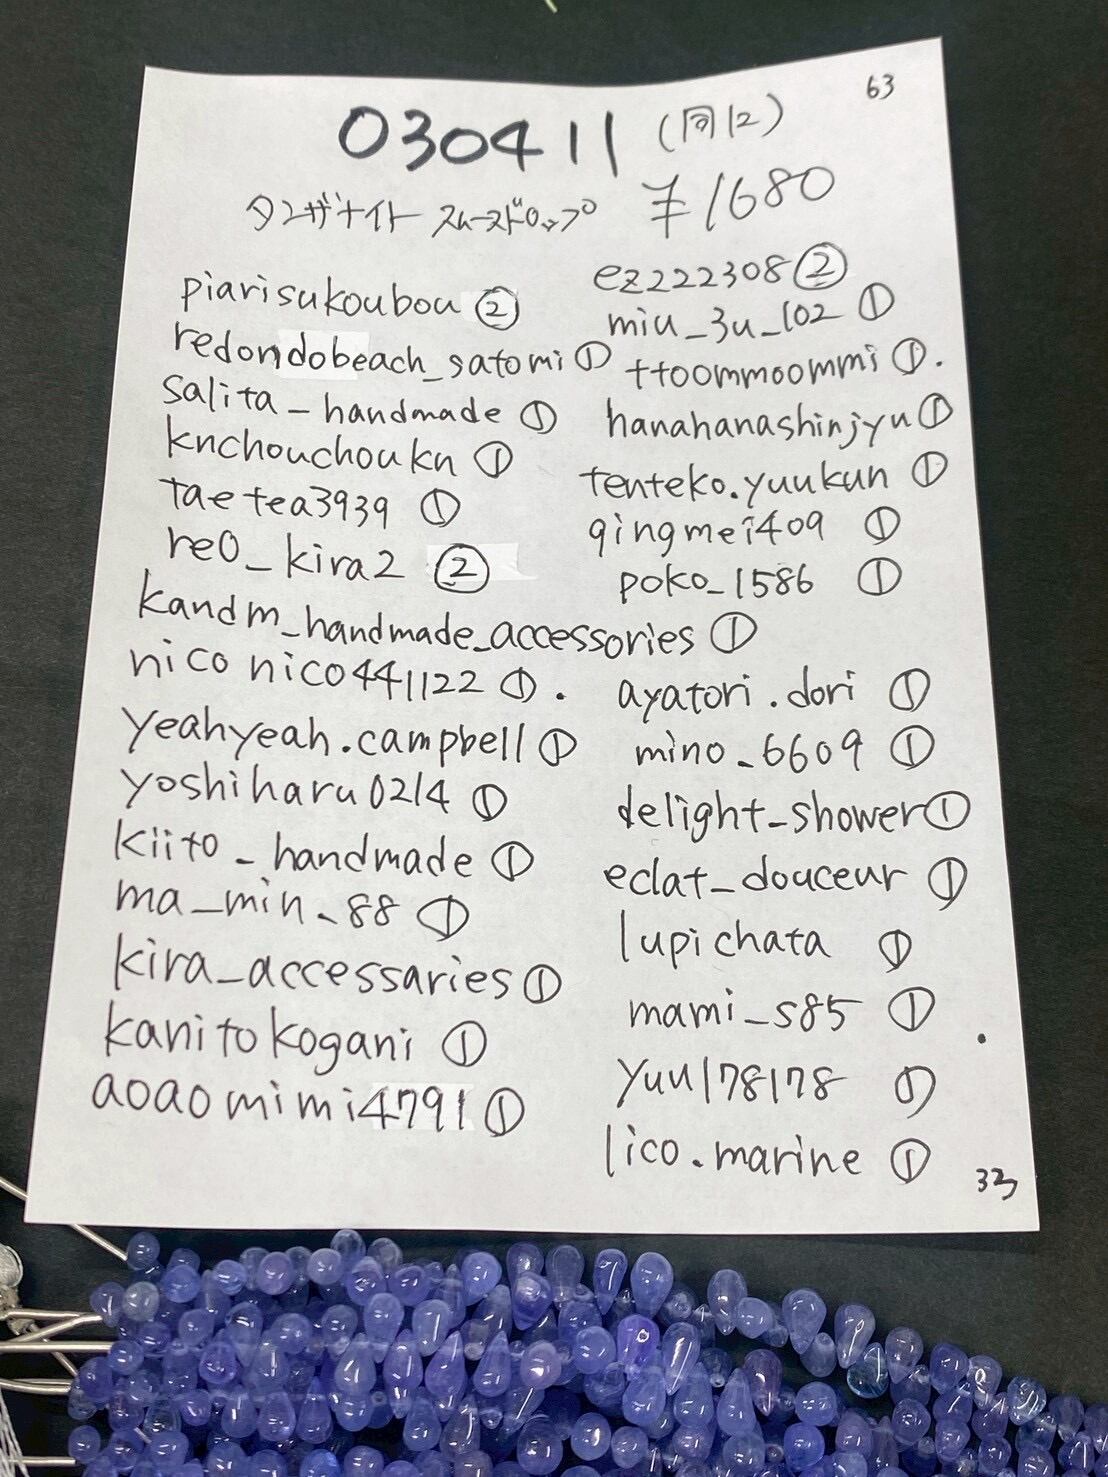 63
030411 (同12)
タンザナイト スムースドロップ ¥1680
piarisukoubou ②
redondobeach_satomi ①
salita_handmade ①
knchouchoukn ①
taetea3939 ①
re0_kira2 ②
kandm_handmade_accessories ①
niconico441122 ①.
yeahyeah.campbell ①
yoshiharu0214 ①
kiito_handmade ①
ma_min_88 ①
kira_accessaries ①
kanitokogani ①
aoaomimi4791 ①
ez222308 ②
miu_3u_102 ①
ttoommoommi ①.
hanahanashinjyu ①
tenteko.yuukun ①
qingmei409 ①
poko_1586 ①
ayatori.dori ①
mino_6609 ①
delight_shower ①
eclat_douceur ①
lupichata ①
mami_s85 ①
yuu178178 ①
lico.marine ①